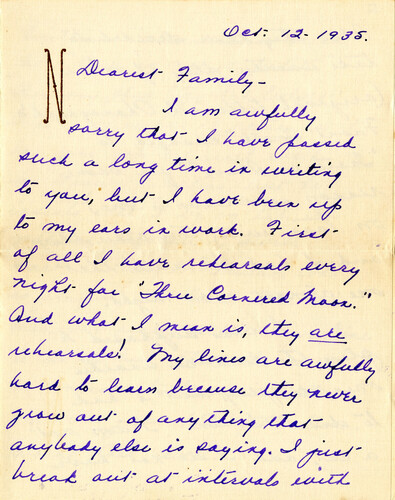 Oct. 12 - 1935.
N
Dearest Family -
I am awfully
sorry that I have passed
such a long time in writing
to you, but I have been up
to my ears in work. First
of all I have rehearsals every
night for "Three Cornered Moon."
And what I mean is, they are
rehearsals! My lines are awfully
hard to learn because they never
grow out of anything that
anybody else is saying. I just
break out at intervals with